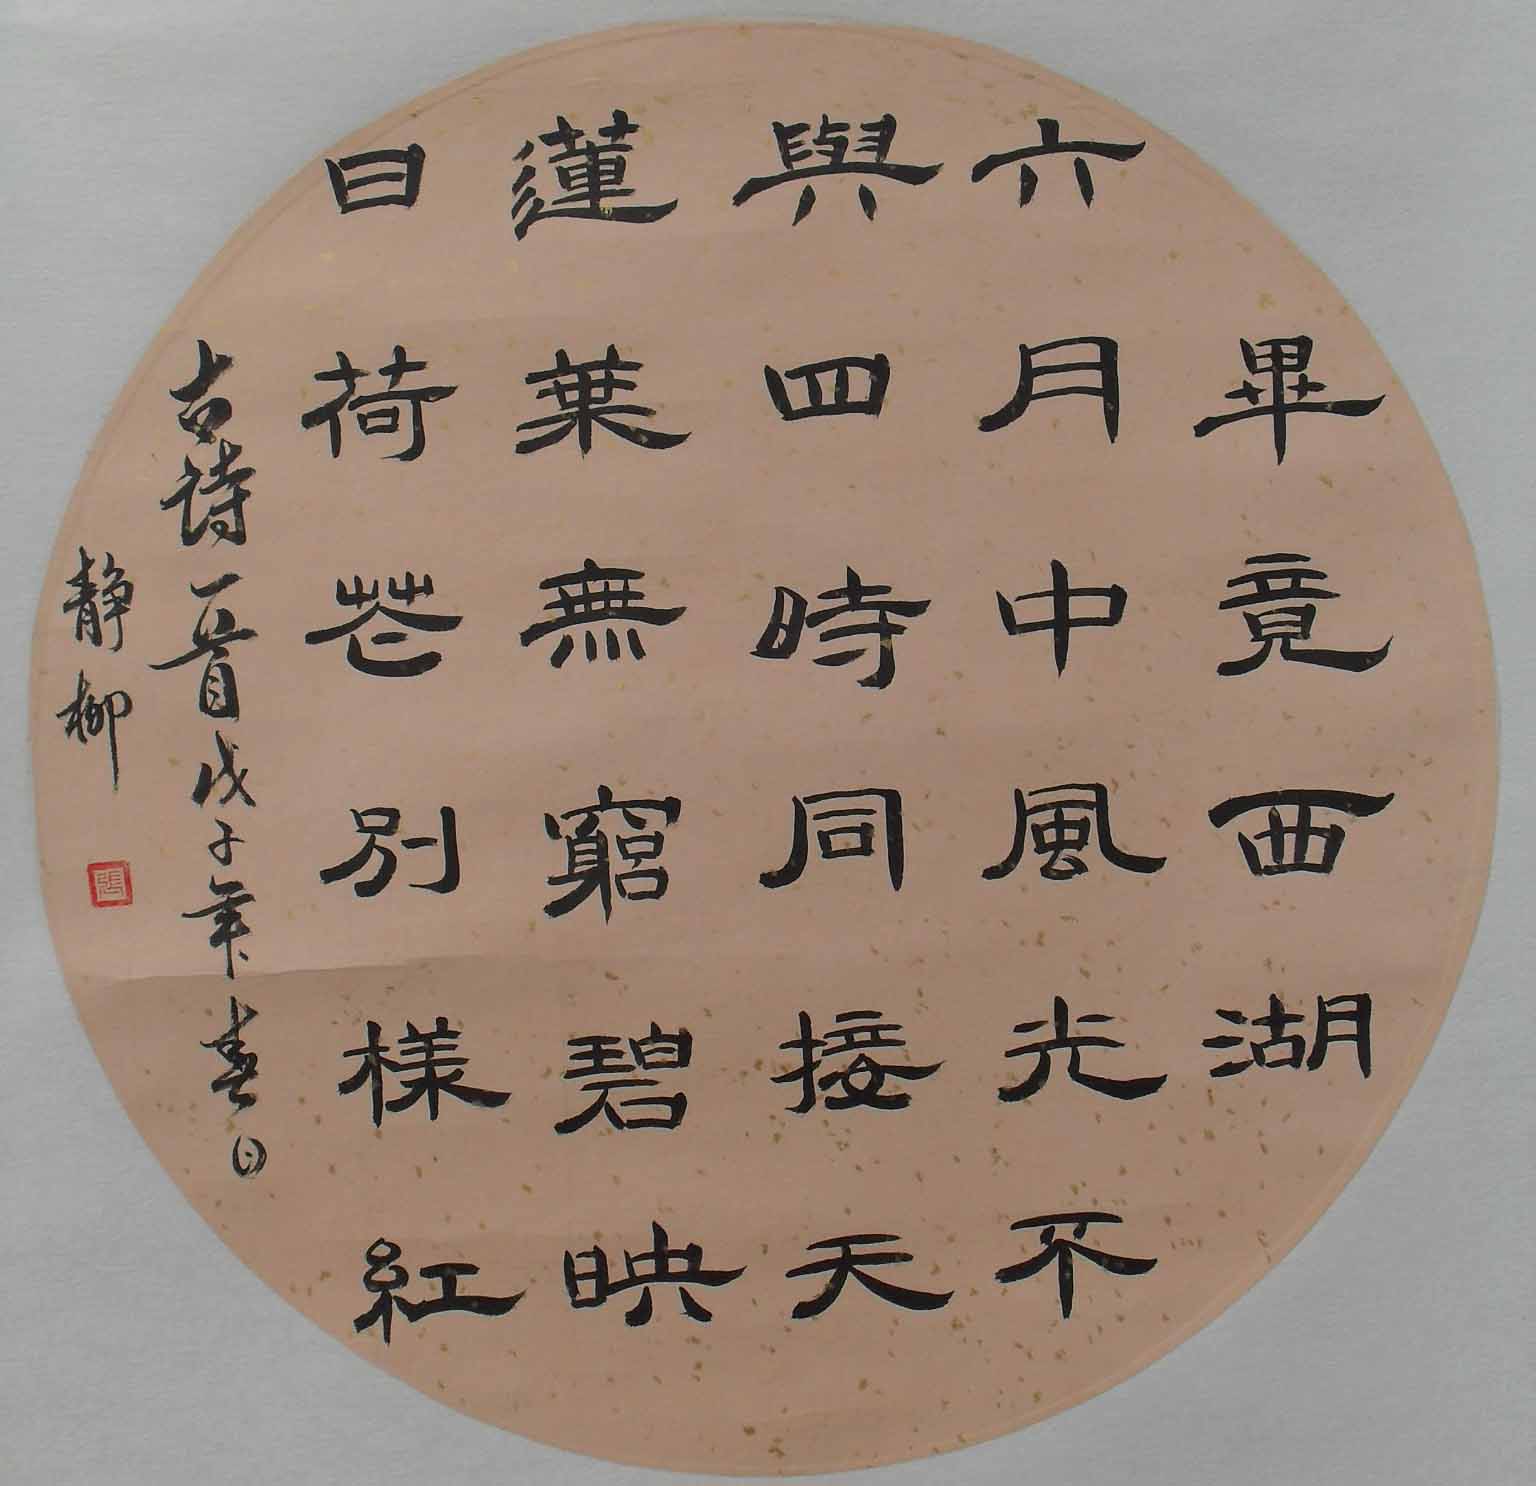 畢竟西湖
六月中風光不
與四時同接天
蓮葉無窮碧映
日荷花別樣紅
古诗一首戊子年春日
静柳
張